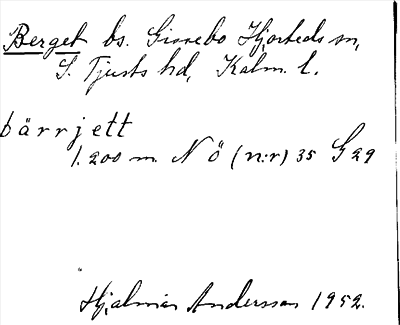 Berget bs. Gissebo Hjorteds sn,
S. Tjusts hd, Kalm. l.
bärrjett
1.200 m. N ö (n:r) 35 G 29
Hjalmar Andersson 1952.